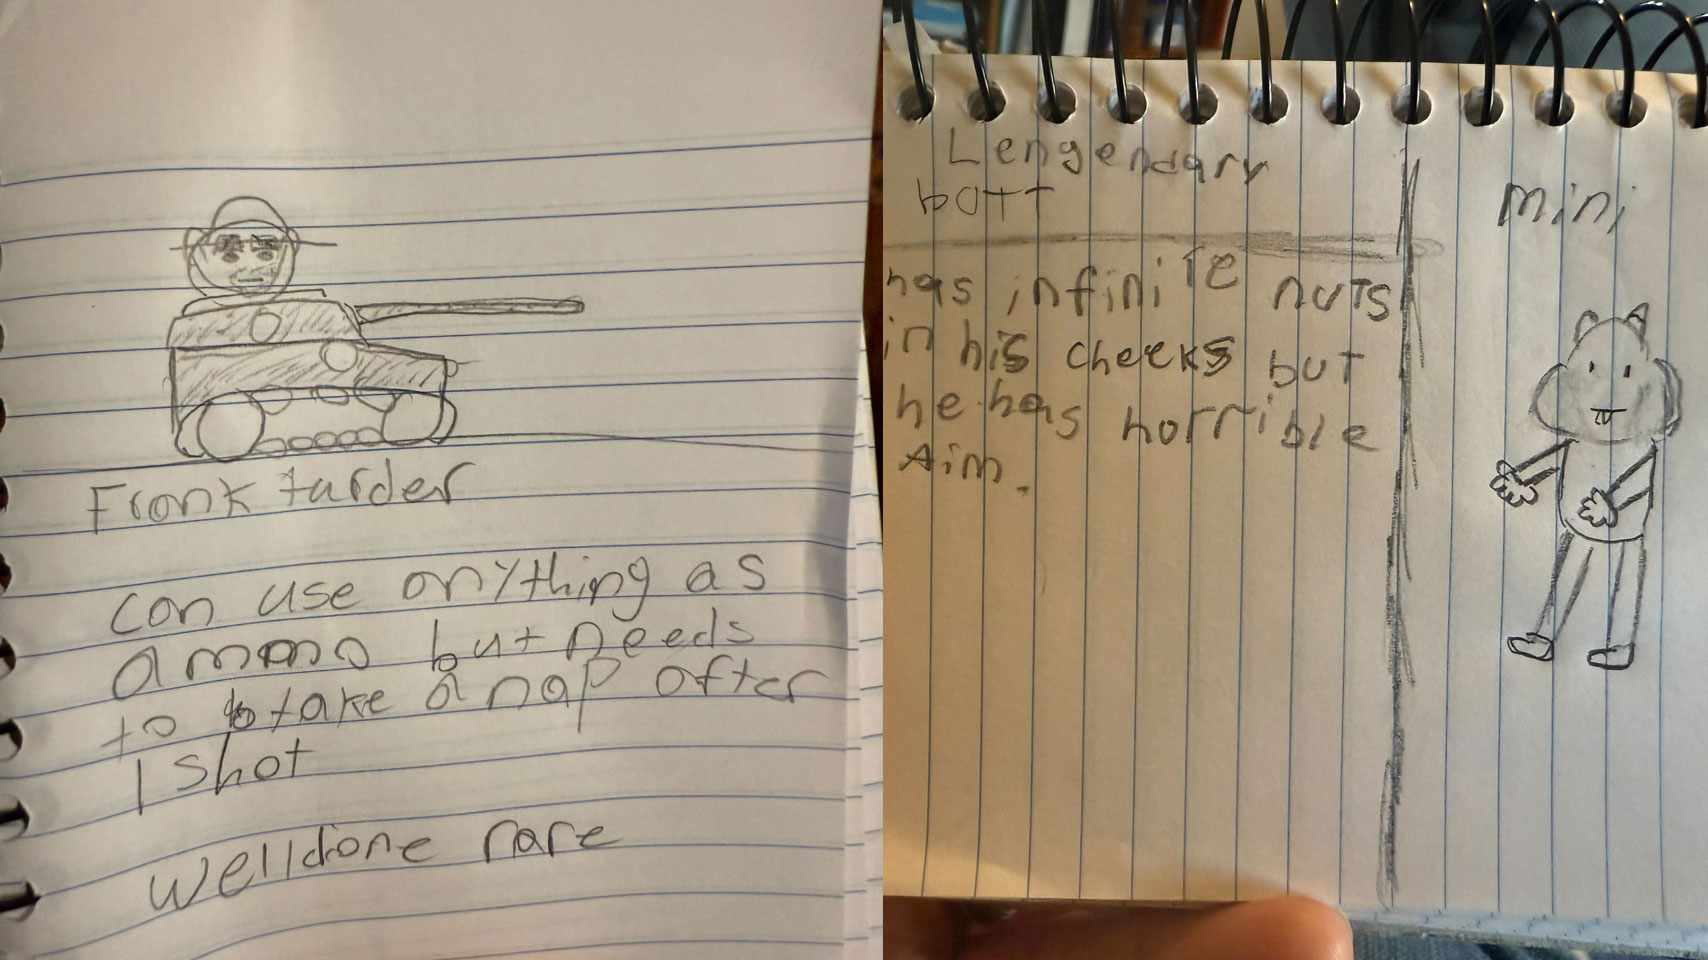 Frank turder
can use anything as
ammo but needs
to take a nap after
1 shot
welldone rare
Lengendary
butt
has infinite nuts
in his cheeks but
he has horrible
Aim.
mini